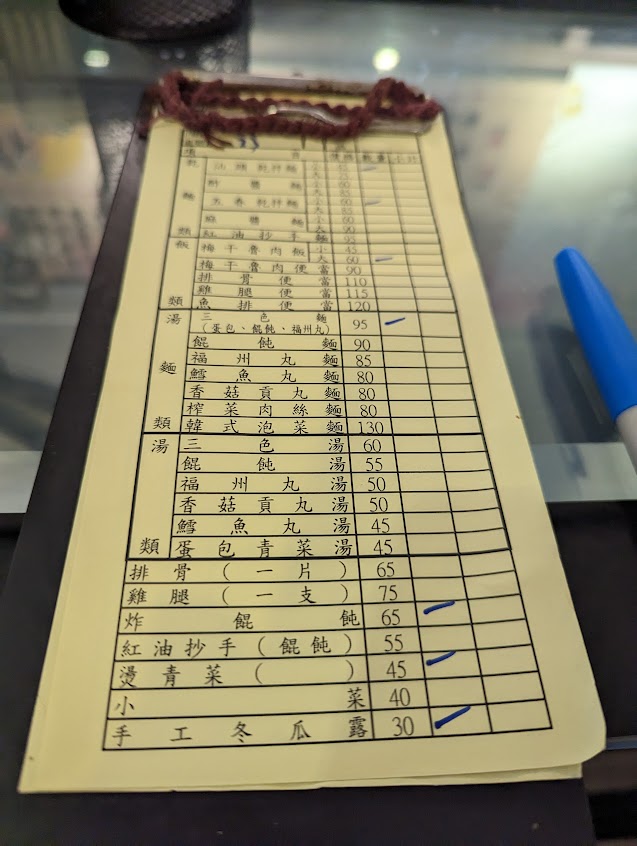 乾 汕頭乾拌麵 小
大
炸醬麵 小 60
大 85
麵 小 60
大 85
麻醬麵 小 60
大 90
類 紅油抄手麵 95
飯 梅干魯肉飯 小 45
大 60
梅干魯肉便當 90
排骨便當 110
雞腿便當 115
類 魚排便當 120
湯 三色麵 95
(蛋包、餛飩、福州丸)
餛飩麵 90
福州丸麵 85
麵 鱈魚丸麵 80
香菇貢丸麵 80
榨菜肉絲麵 80
類 韓式泡菜麵 130
湯 三色湯 60
餛飩湯 55
福州丸湯 50
香菇貢丸湯 50
鱈魚丸湯 45
類 蛋包青菜湯 45
排骨(一片) 65
雞腿(一支) 75
炸餛飩 65
紅油抄手(餛飩) 55
燙青菜( ) 45
小菜 40
手工冬瓜露 30